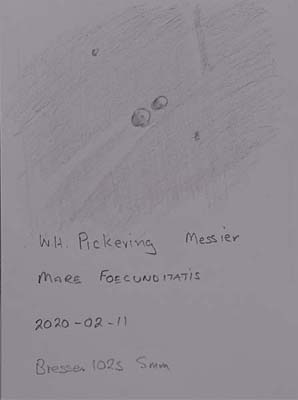 W.H. Pickering Messier
MARE FOECUNDITATIS
2020-02-11
Bresser 102s 5mm